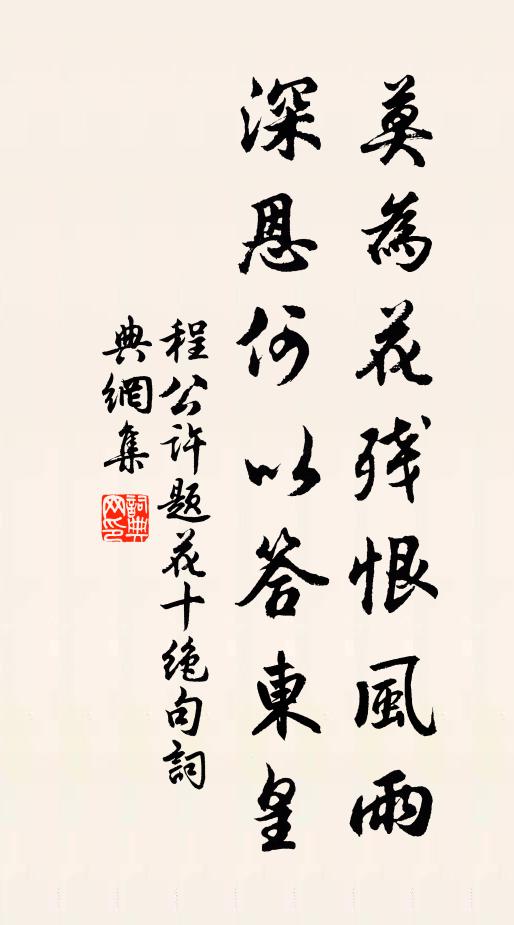 莫為花殘恨風雨
深恩何以答東皇
程公許題花十絕句詞
典網集
詞典網印